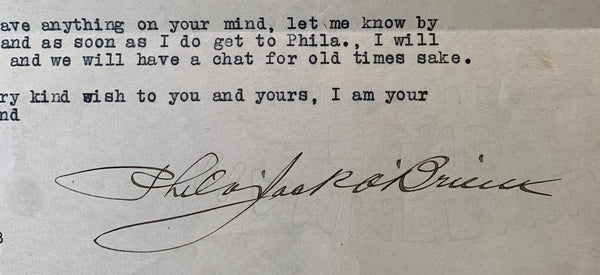 ave anything on your mind, let me know by
and as soon as I do get to Phila., I will
and we will have a chat for old times sake.
ry kind wish to you and yours, I am your
nd
Phila Jack O'Brien